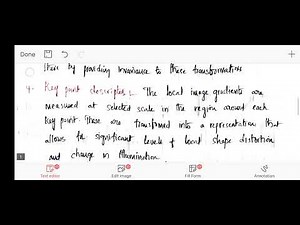 Done
there by providing invariance to these transformations
4. Key point descriptor :- The local image gradients are
measured at selected scale in the region around each
key point. These are transformed into a representation that
allows for significant levels of local shape distortion
and change in illumination.
1
Text editor
Edit image
Fill Form
Annotation